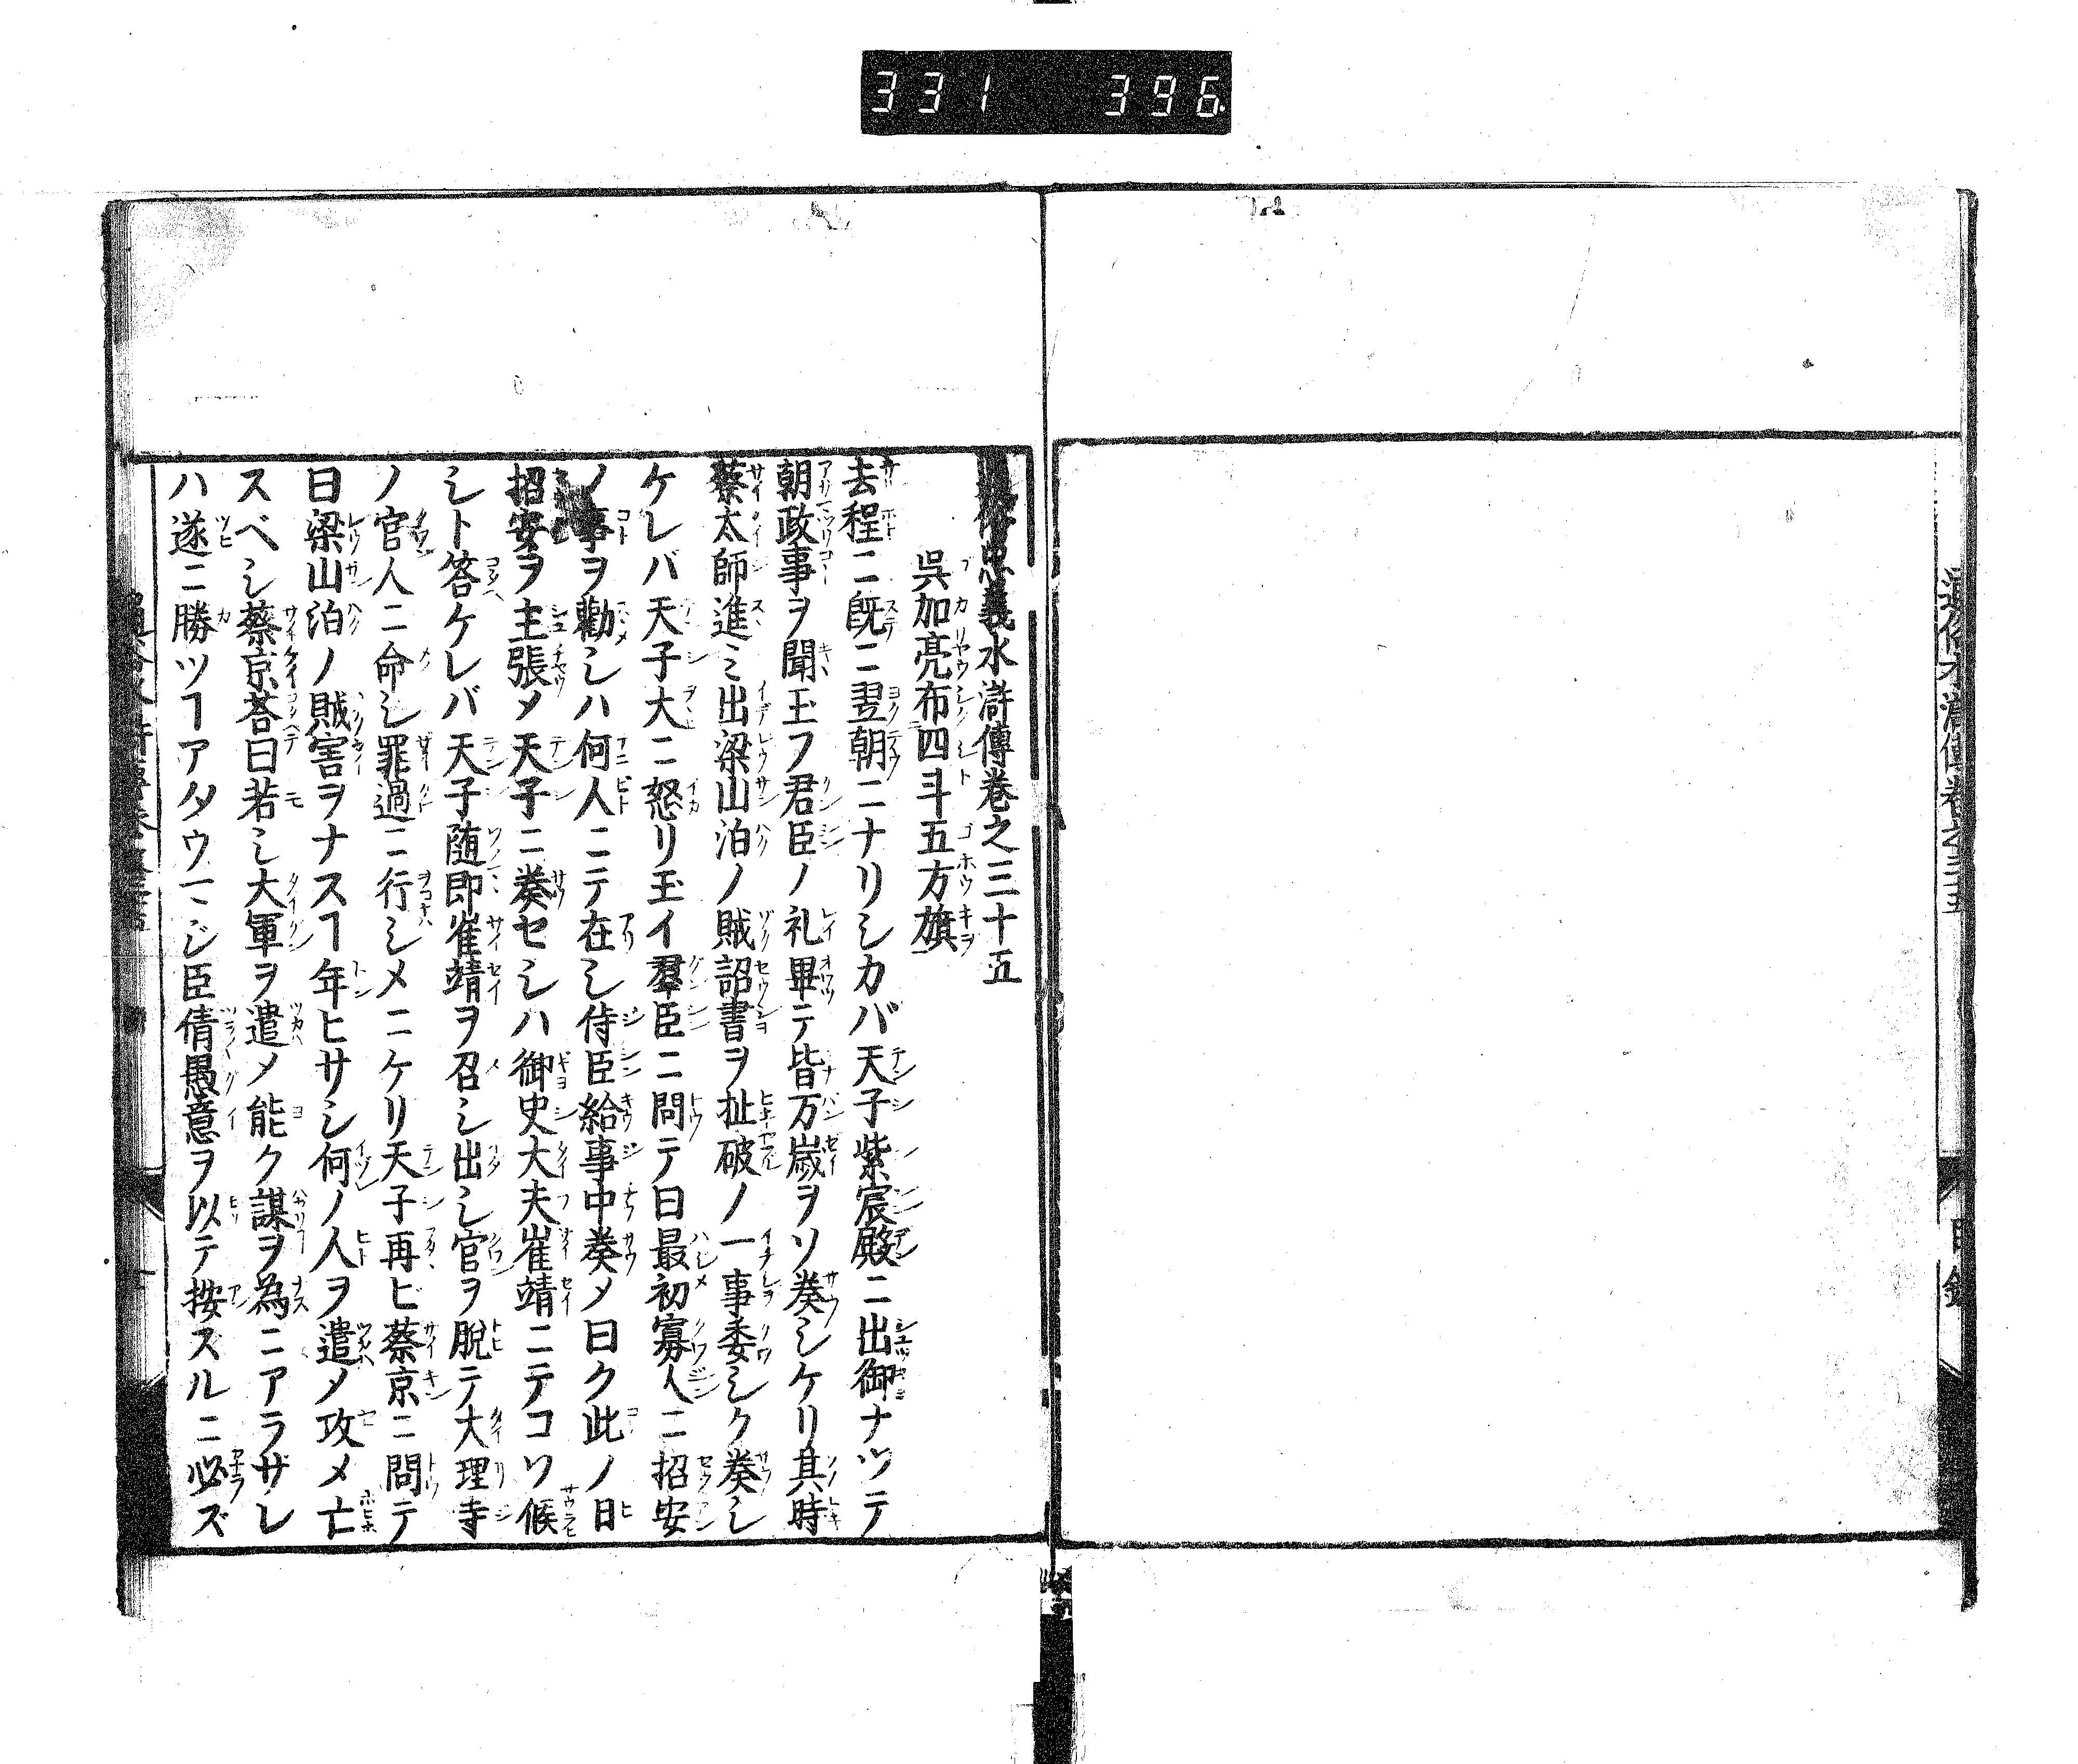 331 396
通俗忠義水滸傳巻之三十五
呉加亮布四斗五方旗
去程ニ既ニ翌朝ニナリシカバ天子紫宸殿ニ出御ナツテ
朝政事ヲ聞玉フ君臣ノ礼畢テ皆万歳ヲソ奏シケリ其時
蔡太師進ミ出梁山泊ノ賊詔書ヲ扯破ノ一事委シク奏シ
ケレバ天子大ニ怒リ玉イ羣臣ニ問テ曰最初寡人ニ招安
ノ事ヲ勸シハ何人ニテ在シ侍臣給事中奏メ曰ク此ノ日
招安ヲ主張メ天子ニ奏セシハ御史大夫崔靖ニテコソ候
シト答ケレバ天子随即崔靖ヲ召シ出シ官ヲ脱テ大理寺
ノ官人ニ命シ罪過ニ行シメニケリ天子再ビ蔡京ニ問テ
曰梁山泊ノ賊害ヲナスヿ年ヒサシ何ノ人ヲ遣ノ攻メ亡
スベシ蔡京荅曰若シ大軍ヲ遣メ能ク謀ヲ為ニアラザレ
ハ遂ニ勝ツヿアタウマジ臣倩愚意ヲ以テ按スルニ必ズ
通俗水滸傳巻之三十五
目錄